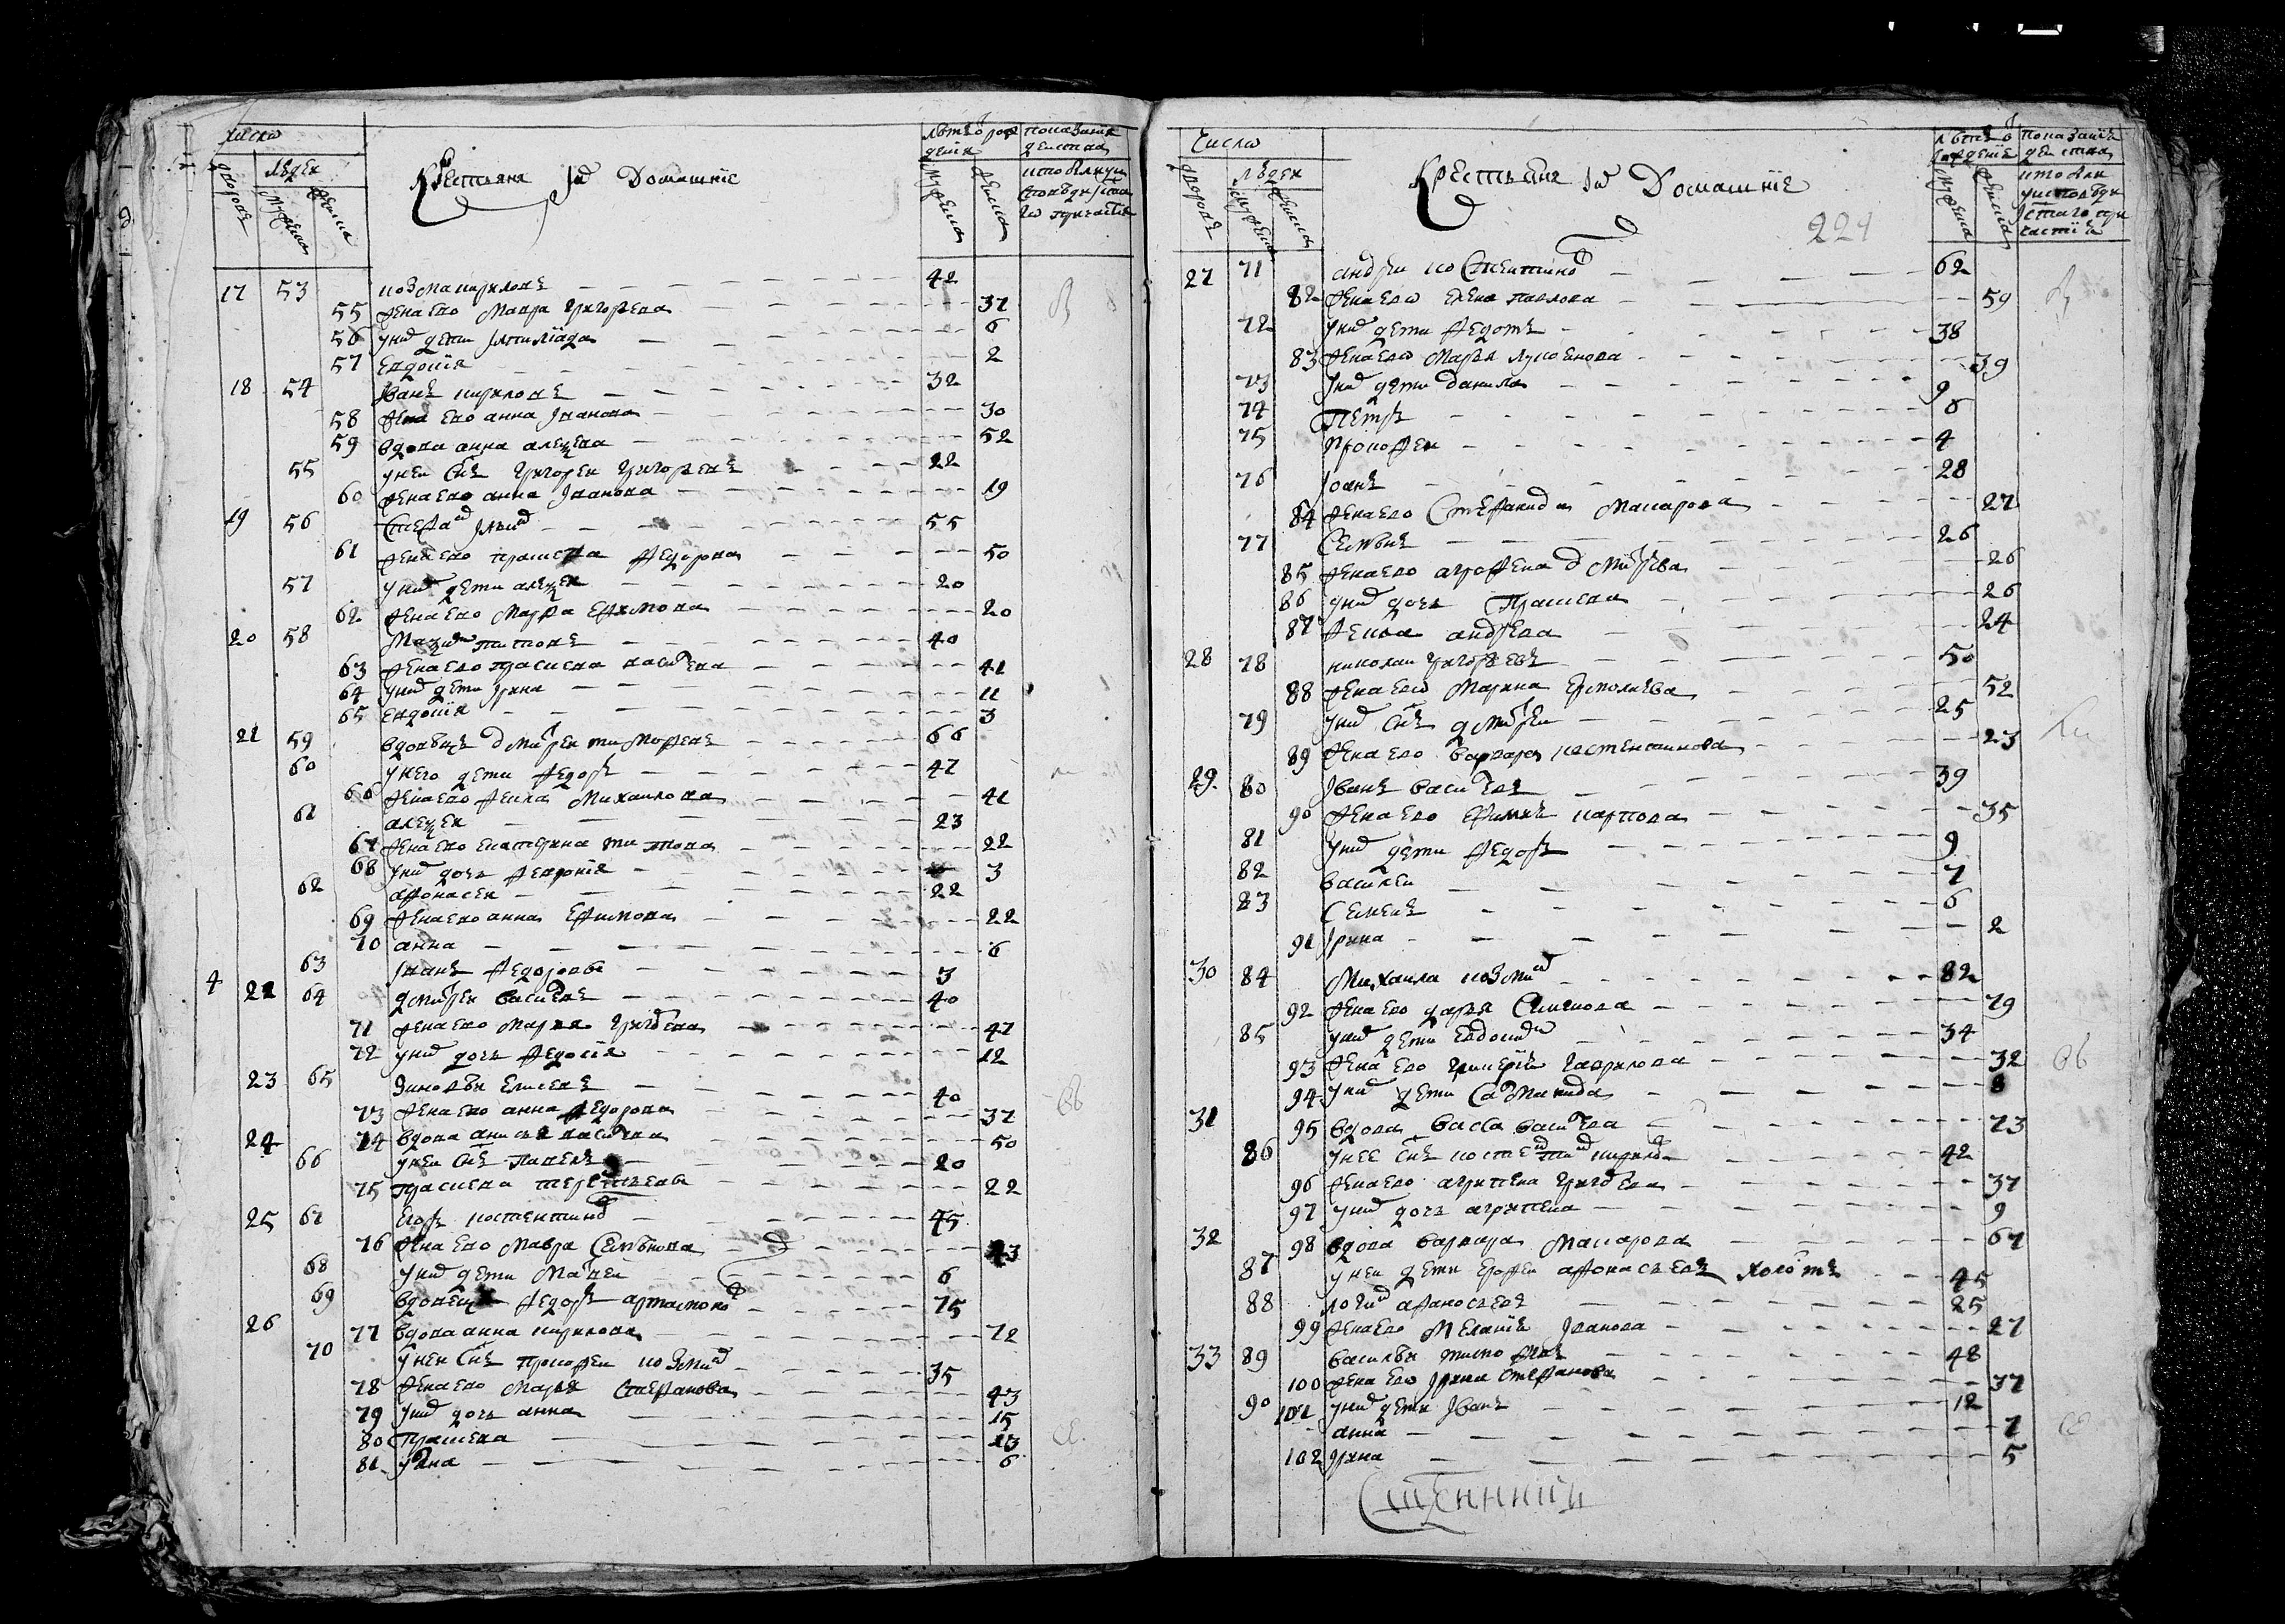 число
людеи
дворовъ
мужеска
женска
Крестьяня и Домашние
мужеска
женска
17 53 козма кириловъ 42
55 жена ево мавра григорьева 37
56 у них дети 6
57 евдокия 2
18 54 иванъ кириловъ 32
58 жена ево анна иванова 30
59 вдова анна алеѯева 52
55 у неи снъ григореи григорьевъ 22
60 жена ево анна иванова 19
19 56 стефан ильин 55
61 жена ево прасковя федорова 50
57 у них дети алеѯеи 20
62 жена ево марфа ефимова 20
20 58 титовъ 40
63 жена ево прасковя василева 41
64 у них дети ирина 11
65 евдокия 3
21 59 вдовецъ дмитреи тимофеевъ 66
60 у него дети федоръ 47
66 жена ево фекла михаилова 41
61 алеѯеи 23
67 жена ево екатерина титова 22
68 у них дочь феврония 3
62 афонасеи 22
69 жена ево анна ефимова 22
70 анна 6
63 иванъ федоровъ 3
4 22 64 дмитреи василевъ 40
71 жена ево марья григорева 47
72 у них дочь федосия 12
23 65 зиновеи елисеевъ 40
73 жена ево анна федорова 37
24 74 вдова анисья василева 50
66 у неи снъ павелъ 20
75 прасковя терентьева 22
25 67 егоръ костентинов 45
76 жена ево мавра семѣнова 43
68 у них дети матвеи 6
69 вдовецъ федоръ артамонов 75
26 77 вдова анна кирилова 72
70 у неи снъ прокофеи козмин 35
78 жена ево марья стефанова 43
79 у них дочь анна 15
80 прасковя 13
81 6
Число
людеи
дворовъ
мужеска
женска
Крестьяня и Домашние
224
мужеска
женска
27 71 андреи костентинов 62
82 жена ево елена павлова 59
72 у них дети федотъ 38
83 жена ево марья лукоянова 39
73 у них дети данила 9
74 петръ 6
75 прокофеи 4
76 иоанъ 28
84 жена ево стефанида макарова 27
77 семѣнъ 26
85 жена ево агрофена дмитрева 26
86 у них дочь прасковя 26
87 фекла андреева 24
28 78 николаи григорьевъ 50
88 жена ево марина ермолаева 52
79 у них снъ дмитреи 25
89 жена ево варвара костентинова 23
29 80 иванъ василевъ 39
90 жена ево карпова 35
81 у них дети федоръ 9
82 василеи 7
83 семенъ 6
91 ирина 2
30 84 михаила козмин 82
92 жена ево дарья симонова 79
85 у них дети евдоким 34
93 жена ево гликерия гаврилова 32
94 у них дети соломанида 8
31 95 вдова васса василева 73
86 у нее снъ костентин кирилов 42
96 жена ево агрипена григорева 37
97 у них дочь агрипена 9
32 98 вдова варвара макарова 67
87 у неи дети ерофеи афонасьевъ холостъ 45
88 логин афанасьевъ 25
99 жена ево мелания иванова 27
33 89 василеи тимофеевъ 48
100 жена ево ирина стефанова 37
90 101 у них дети иванъ 12
анна 7
102 ирина 5
Сщенникъ